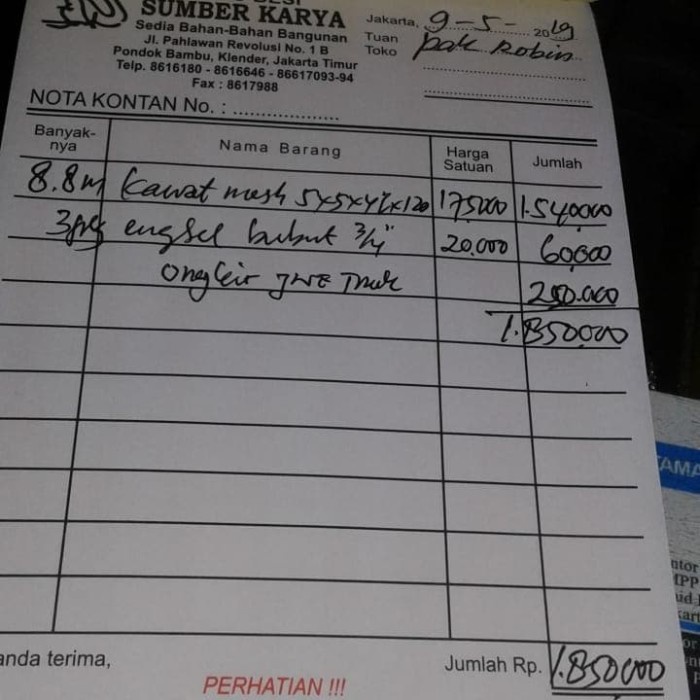 SUMBER KARYA
Sedia Bahan-Bahan Bangunan
Jl. Pahlawan Revolusi No. 1 B
Pondok Bambu, Klender, Jakarta Timur
Telp. 8616180 - 8616646 - 86617093-94
Fax : 8617988
Jakarta, 9-5- 2019
Tuan
Toko pak Robin
NOTA KONTAN No. :
Banyak-nya Nama Barang Harga Satuan Jumlah
8.8m kawat mesh 175000 1.540000
3pcs engsel bubut 3/4" 20.000 60000
ongkir JNE Truck 250.000
1.850000
anda terima, Jumlah Rp. 1.850000
PERHATIAN !!!
TAMA